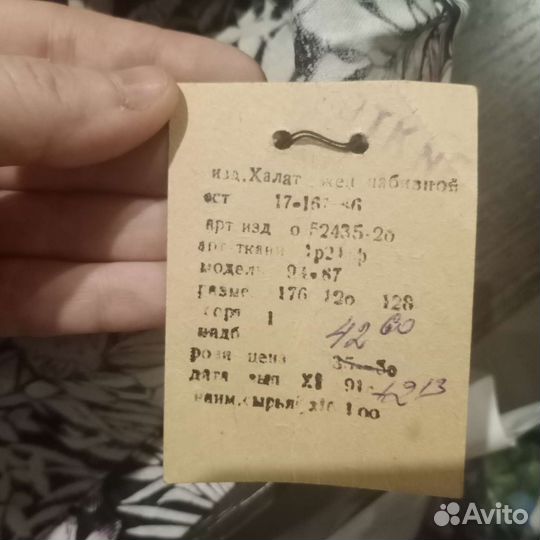 изд. Халат жен набивной
ост 17-167-86
арт изд о 52435-2о
арт-ткани
модель 94-87
размер 176 12о 128
сорт 1
надб 42 60
розн цена 35-50
дата вып XI 91 4213
наим. сырья х/б 1оо
Avito